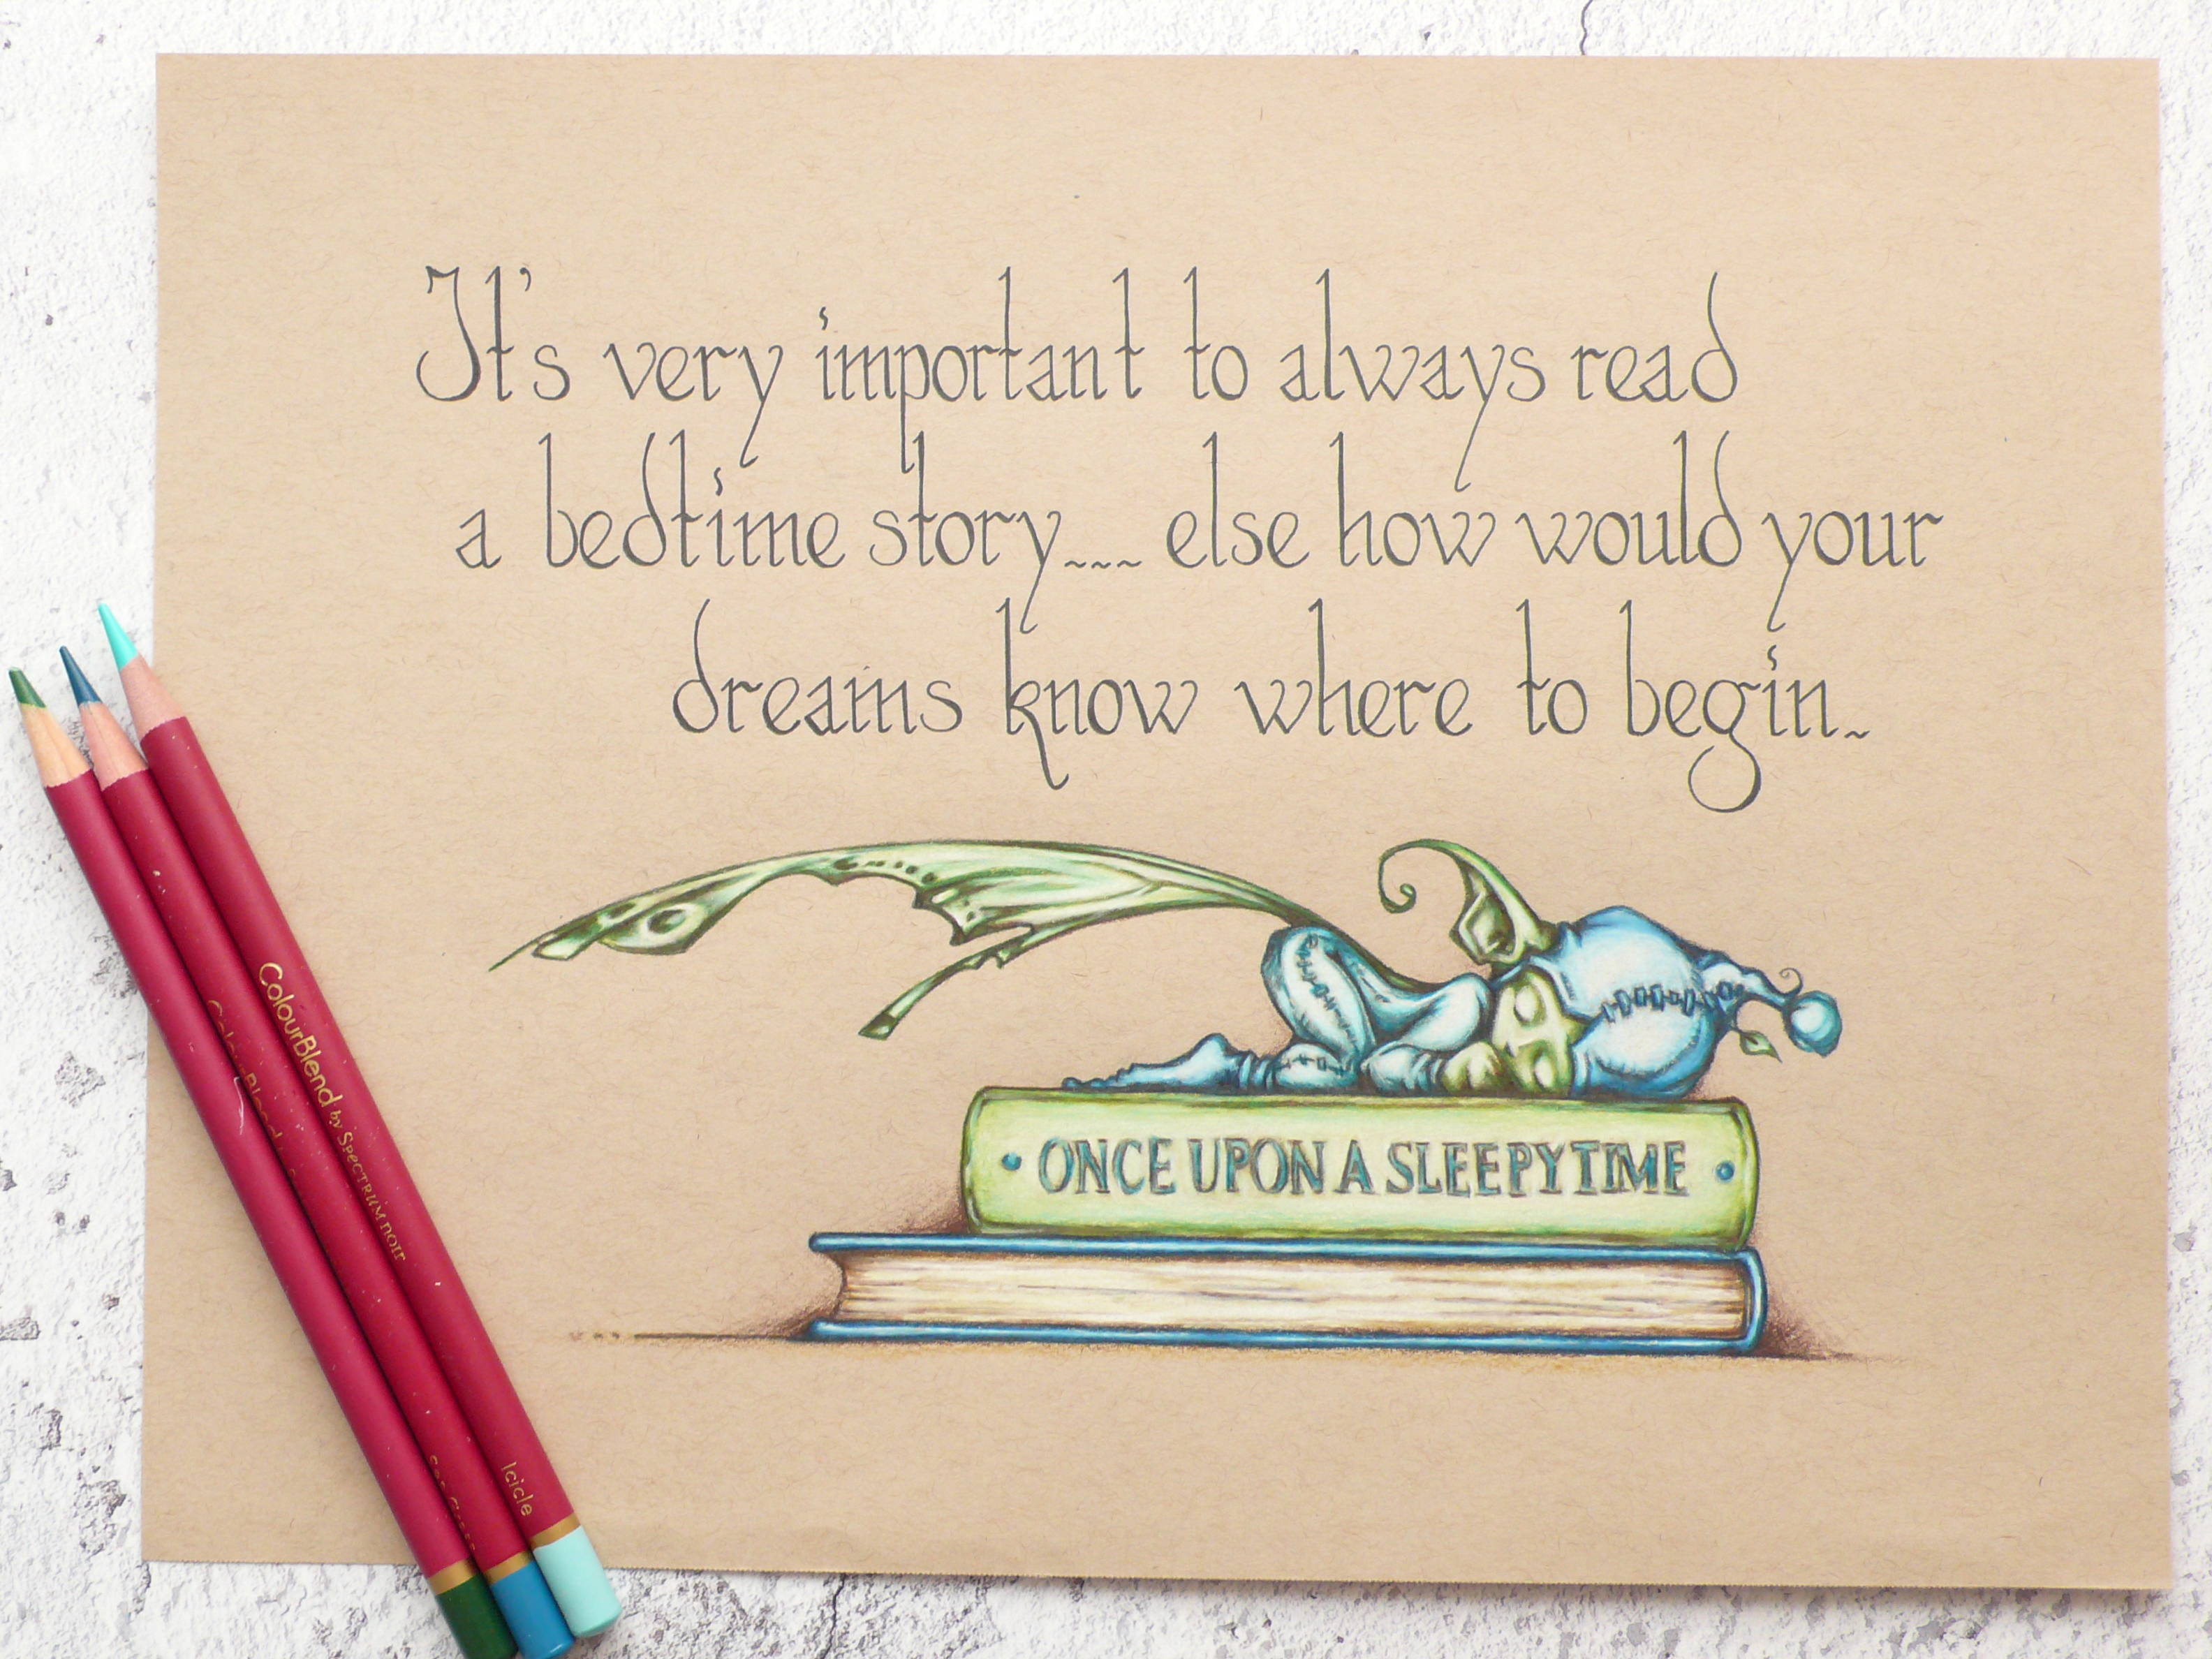 It's very important to always read
a bedtime story.... else how would your
dreams know where to begin.
ONCE UPON A SLEEPYTIME
ColourBlend by SPECTRUM NOIR
Icicle